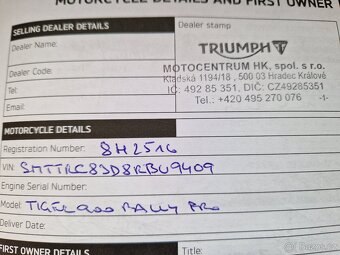 MOTORCYCLE DETAILS AND FIRST OWNER
SELLING DEALER DETAILS
Dealer stamp
Dealer Name:
TRIUMPH
MOTOCENTRUM HK, spol. s r.o.
Dealer Code:
Kladská 1194/18, 500 03 Hradec Králové
IČ: 492 85 351, DIČ: CZ49285351
Tel:
Tel.: +420 495 270 076 -1-
Email:
MOTORCYCLE DETAILS
Registration Number: 8H2516
VIN: SMTTRC83D8RBU9409
Engine Serial Number:
Model: TIGER 900 RALLY PRO
Deliver Date:
FIRST OWNER DETAILS
Title: